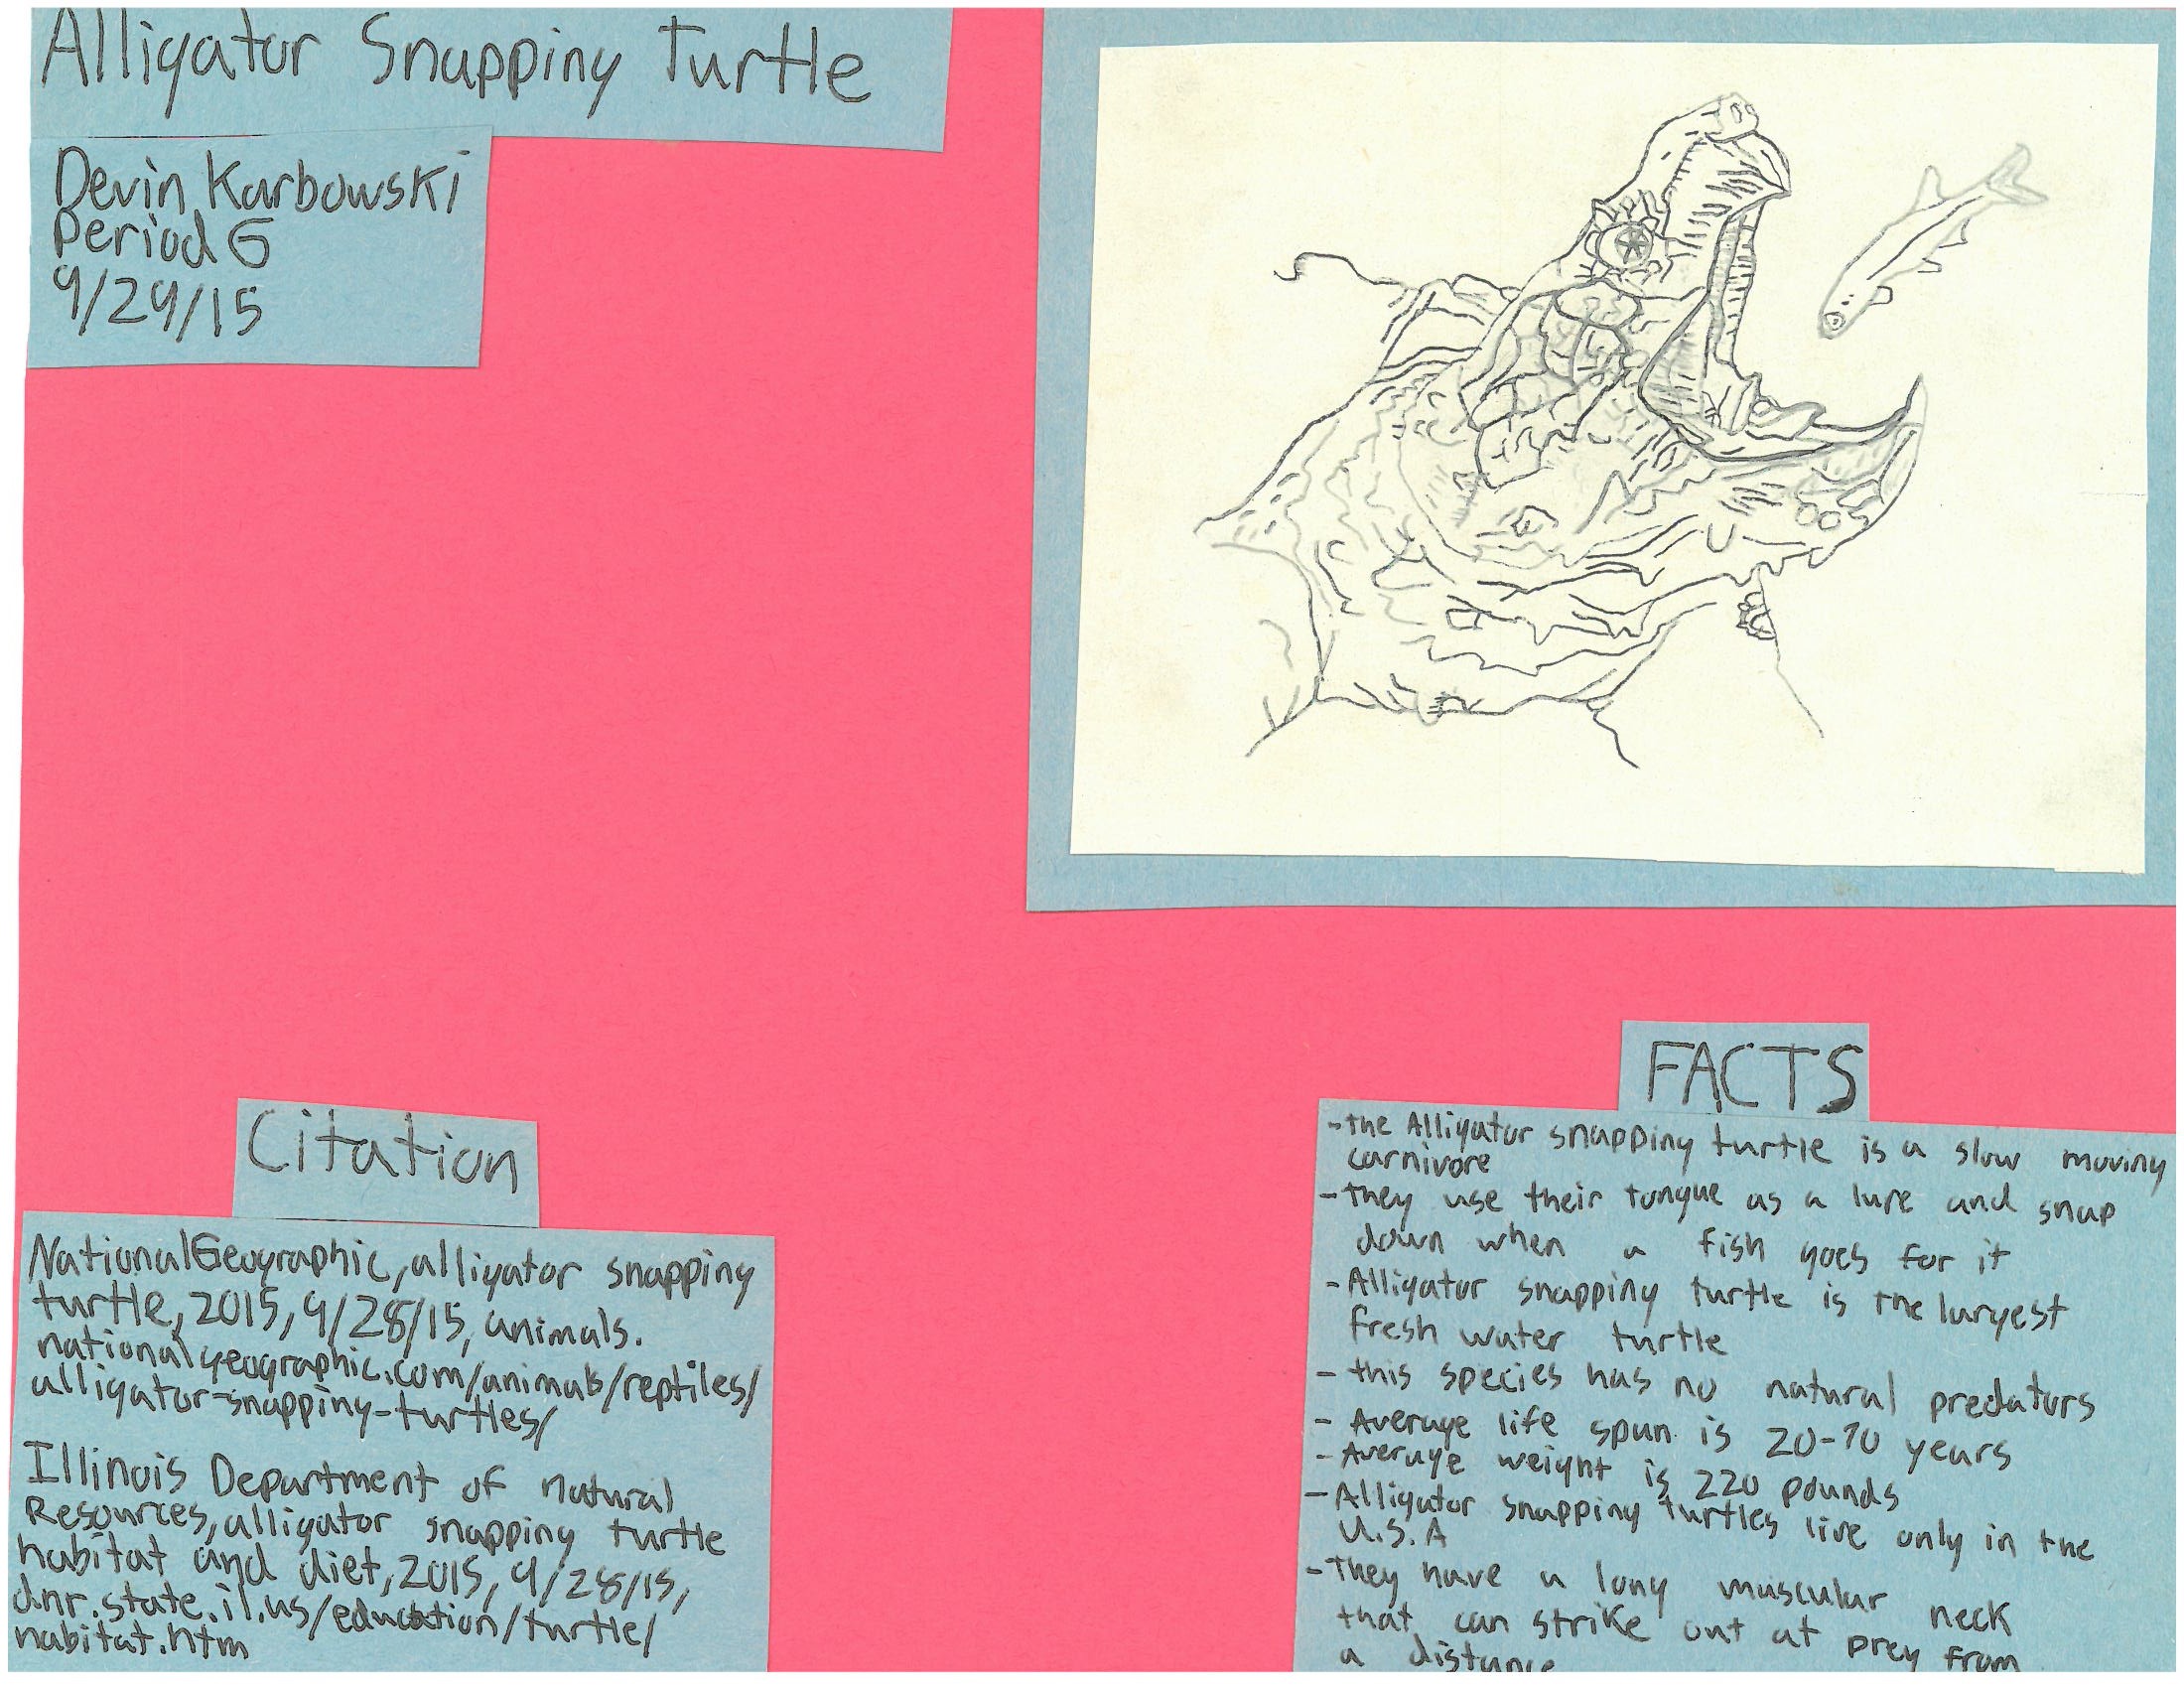 Alligator Snapping Turtle
Devin Karbowski
Period G
9/29/15
Citation
NationalGeographic, alligator snapping
turtle, 2015, 9/28/15, animals.
nationalgeographic.com/animals/reptiles/
alligator-snapping-turtles/
Illinois Department of Natural
Resources, alligator snapping turtle
habitat and diet, 2015, 9/28/15,
dnr.state.il.us/education/turtle/
habitat.htm
FACTS
- the Alligator snapping turtle is a slow moving
carnivore
- they use their tongue as a lure and snap
down when a fish goes for it
- Alligator snapping turtle is the largest
fresh water turtle
- this species has no natural predators
- Average life span is 20-70 years
- Average weight is 220 pounds
- Alligator snapping turtles live only in the
U.S.A
- They have a long muscular neck
that can strike out at prey from
a distance